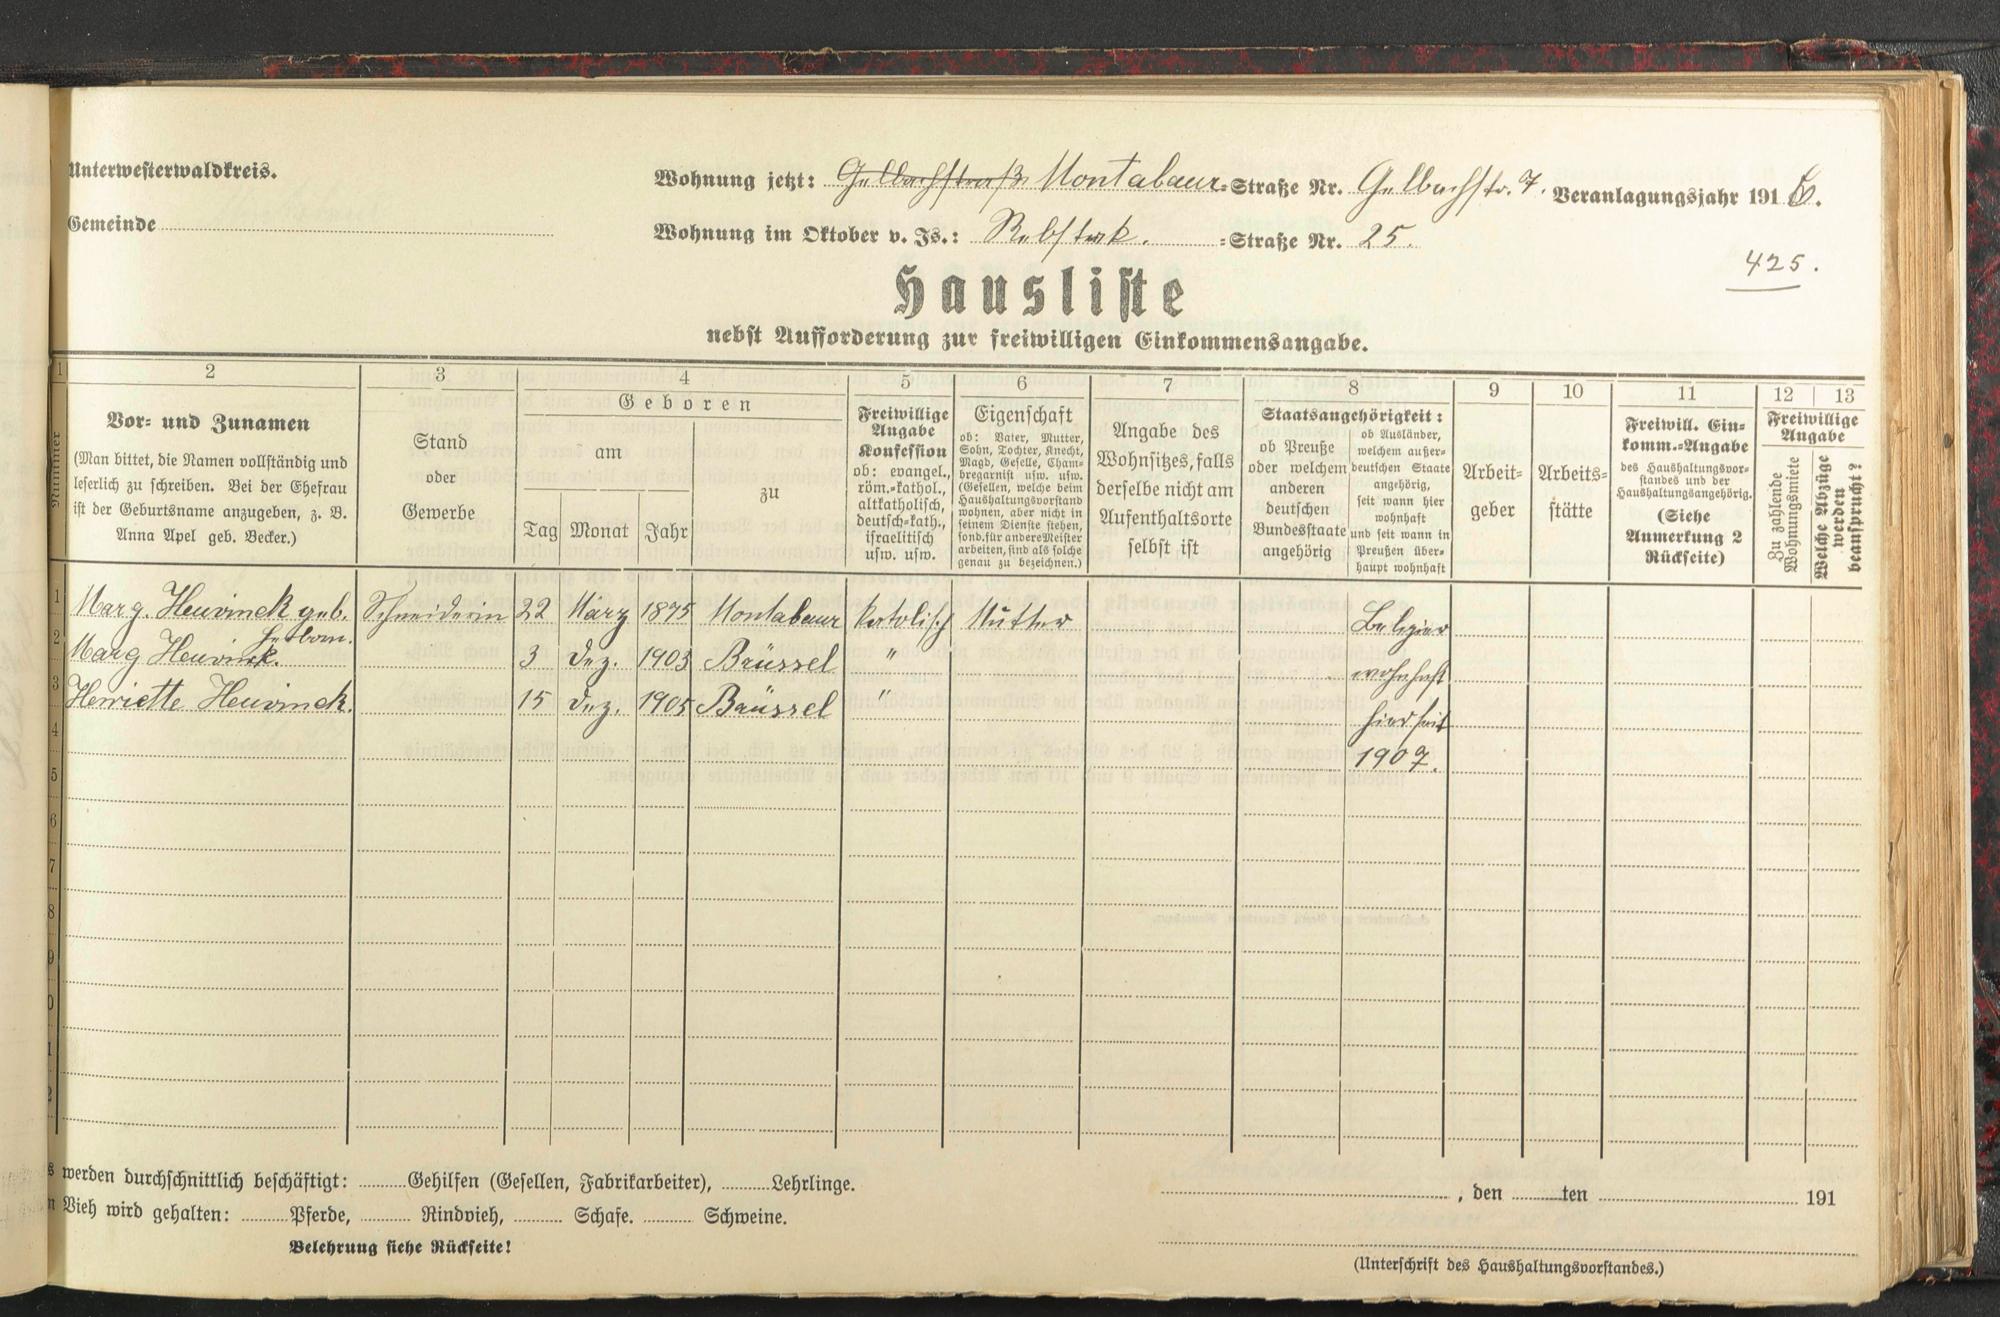 Unterwesterwaldkreis.
Gemeinde
Wohnung jetzt: Gelbachstraße Montabaur -Straße Nr. Gelbachstr. 7. Veranlagungsjahr 1916.
Wohnung im Oktober v. Js.: Rebstock. -Straße Nr. 25.
425.
Hausliste
nebst Aufforderung zur freiwilligen Einkommensangabe.
1 2 3 4 5 6 7 8 9 10 11 12 13
Nummer
Vor- und Zunamen
(Man bittet, die Namen vollständig und
leserlich zu schreiben. Bei der Ehefrau
ist der Geburtsname anzugeben, z. B.
Anna Apel geb. Becker.)
Stand
oder
Gewerbe
Geboren
am
Tag Monat Jahr
zu
Freiwillige
Angabe
Konfession
ob: evangel.,
röm.-kathol.,
altkatholisch,
deutsch-kath.,
israelitisch
usw. usw.
Eigenschaft
ob: Vater, Mutter,
Sohn, Tochter, Knecht,
Magd, Geselle, Cham-
bregarnist usw. usw.
(Gesellen, welche beim
Haushaltungsvorstand
wohnen, aber nicht in
seinem Dienste stehen,
sond. für andere Meister
arbeiten, sind als solche
genau zu bezeichnen.)
Angabe des
Wohnsitzes, falls
derselbe nicht am
Aufenthaltsorte
selbst ist
Staatsangehörigkeit:
ob Preuße
oder welchem
anderen
deutschen
Bundesstaate
angehörig
ob Ausländer,
welchem außer-
deutschen Staate
angehörig,
seit wann hier
wohnhaft
und seit wann in
Preußen über-
haupt wohnhaft
Arbeit-
geber
Arbeits-
stätte
Freiwill. Ein-
komm.-Angabe
des Haushaltungsvor-
standes und der
Haushaltungsangehörig.
(Siehe
Anmerkung 2
Rückseite)
Freiwillige
Angabe
Zu zahlende
Wohnungsmiete
Welche Abzüge
werden
beansprucht?
1 Marg. Heuvinck geb. Schneiderin 22 März 1875 Montabaur katolisch Mutter Belgier
2 Marg Heuvinck. 3 Dez. 1903 Brüssel " wohnhaft
3 Henriette Heuvinck. 15 Dez. 1905 Brüssel " hier seit
4 1907.
5
6
7
8
9
0
1
2
werden durchschnittlich beschäftigt: Gehilfen (Gesellen, Fabrikarbeiter), Lehrlinge.
Vieh wird gehalten: Pferde, Rindvieh, Schafe. Schweine.
Belehrung siehe Rückseite!
, den ten 191
(Unterschrift des Haushaltungsvorstandes.)